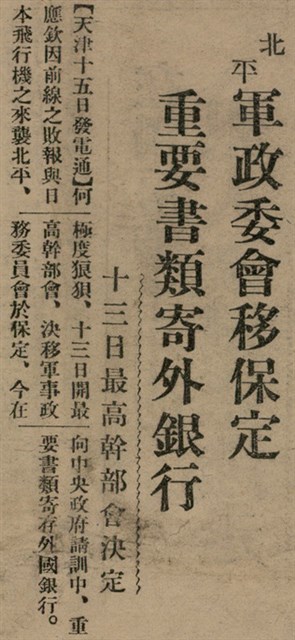 北平軍政委會移保定
重要書類寄外銀行
十三日最高幹部會決定
【天津十五日發電通】何
應欽因前線之敗報與日
本飛行機之來襲北平、
極度狼狽、十三日開最
高幹部會、決移軍事政
務委員會於保定、今在
向中央政府請訓中、重
要書類寄存外國銀行。